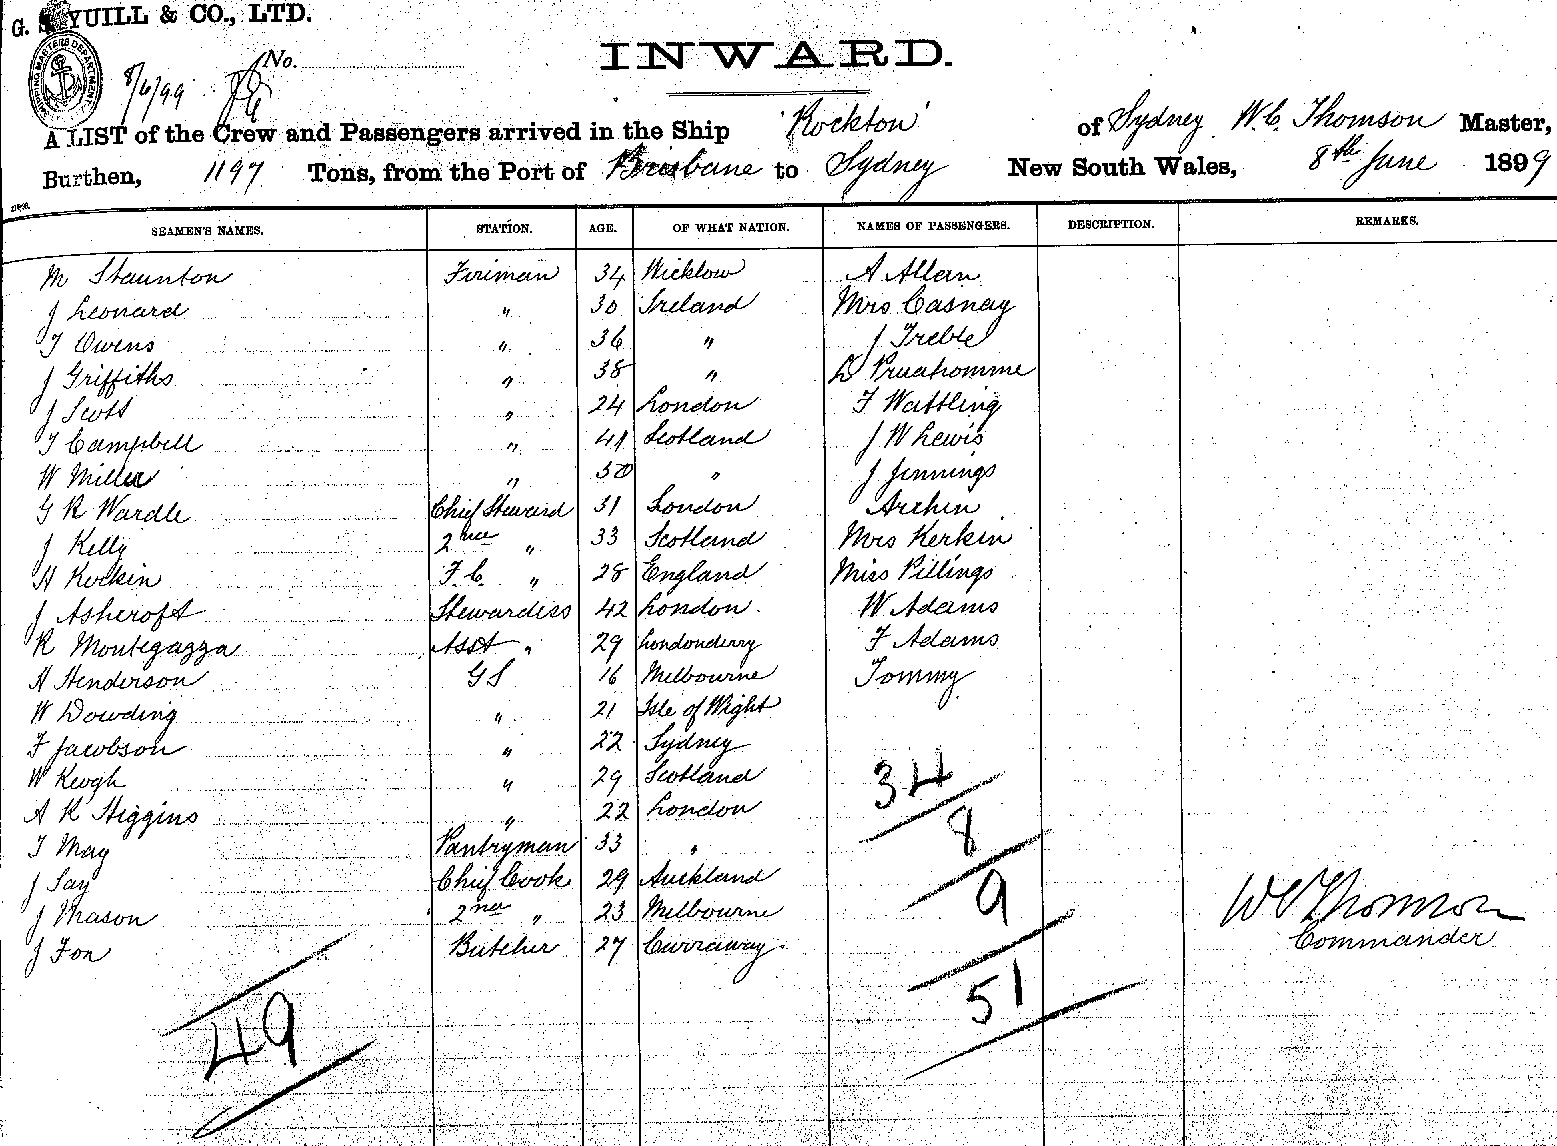 G. S. YUILL & CO., LTD.
SHIPPING MASTERS DEPARTMENT
8/6/99
No.
INWARD.
A LIST of the Crew and Passengers arrived in the Ship 'Rockton' of Sydney W. C. Thomson Master,
Burthen, 1197 Tons, from the Port of Brisbane to Sydney New South Wales, 8th June 1899
SEAMEN'S NAMES. STATION. AGE. OF WHAT NATION. NAMES OF PASSENGERS. DESCRIPTION. REMARKS.
M Staunton Fireman 34 Wicklow A Allan
J Leonard " 30 Ireland Mrs Casnay
T Owens " 36 " J Treble
J Griffiths " 38 " D Pruahomme
J Scott " 24 London F Wattling
T Campbell " 41 Scotland J W Lewis
W Miller " 50 " J Jennings
G R Wardle Chief Steward 31 London Archin
J Kelly 2nd " 33 Scotland Mrs Kerkin
H Rockin F. C. " 28 England Miss Pillings
J Ashcroft Stewardess 42 London. W Adams
R Montegazza Asst " 29 Londonderry F Adams
H Henderson G S 16 Melbourne Tommy
W Dowding " 21 Isle of Wight
F Jacobson " 22 Sydney
W Keogh " 29 Scotland
A R Higgins " 22 London
T May Pantryman 33 "
J Say Chief Cook 29 Auckland
J Mason 2nd " 23 Melbourne
J Fox Butcher 27 Curraway
34
8
9
51
49
W C Thomson
Commander